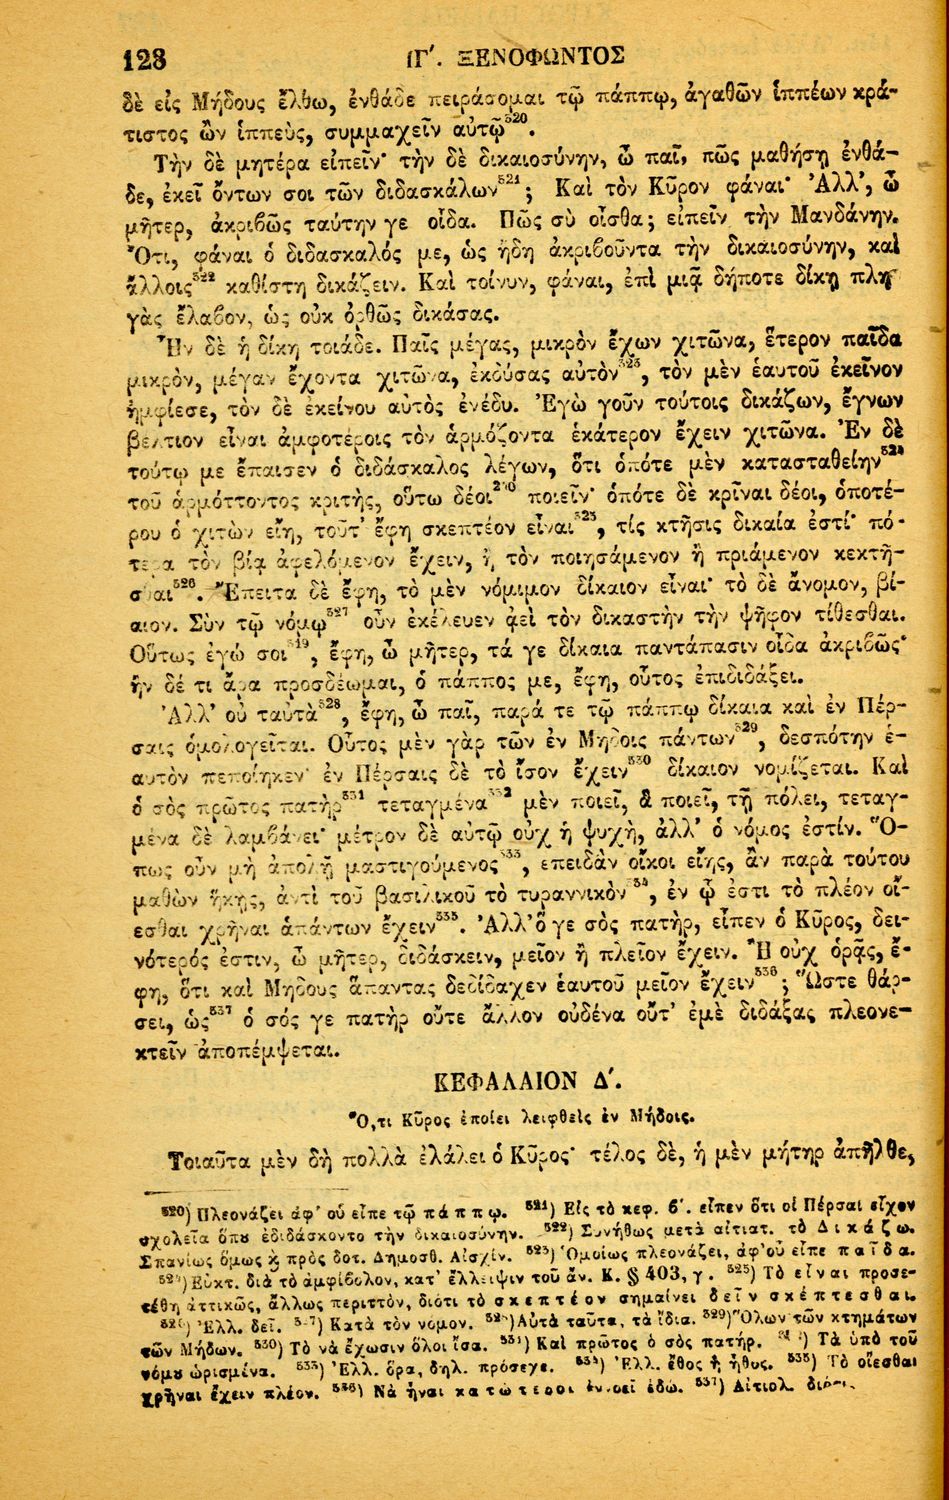 128 ΙΓ΄. ΞΕΝΟΦΩΝΤΟΣ
δὲ εἰς Μήδους ἔλθω, ἐνθάδε πειράσομαι τῷ πάππῳ, ἀγαθῶν ἱππέων κρά-
τιστος ὢν ἱππεὺς, συμμαχεῖν αὐτῷ⁵²⁰.
Τὴν δὲ μητέρα εἰπεῖν· τὴν δὲ δικαιοσύνην, ὦ παῖ, πῶς μαθήσῃ ἐνθά-
δε, ἐκεῖ ὄντων σοι τῶν διδασκάλων⁵²¹; Καὶ τὸν Κῦρον φάναι· Ἀλλ’, ὦ
μῆτερ, ἀκριβῶς ταύτην γε οἶδα. Πῶς σὺ οἶσθα; εἰπεῖν τὴν Μανδάνην.
Ὅτι, φάναι ὁ διδασκαλός με, ὡς ἤδη ἀκριβοῦντα τὴν δικαιοσύνην, καὶ
ἄλλοις⁵²² καθίστη δικάζειν. Καὶ τοίνυν, φάναι, ἐπὶ μιᾷ δήποτε δίκῃ πλη-
γὰς ἔλαβον, ὡς οὐκ ὀρθῶς δικάσας.
Ἦν δὲ ἡ δίκη τοιάδε. Παῖς μέγας, μικρὸν ἔχων χιτῶνα, ἕτερον παῖδα
μικρὸν, μέγαν ἔχοντα χιτῶνα, ἐκδύσας αὐτὸν⁵²³, τὸν μὲν ἑαυτοῦ ἐκεῖνον
ἠμφίεσε, τὸν δὲ ἐκείνου αὐτὸς ἐνέδυ. Ἐγὼ γοῦν τούτοις δικάζων, ἔγνων
βέλτιον εἶναι ἀμφοτέροις τὸν ἁρμόζοντα ἑκάτερον ἔχειν χιτῶνα. Ἐν δὲ
τούτῳ με ἔπαισεν ὁ διδάσκαλος λέγων, ὅτι ὁπότε μὲν κατασταθείην⁵²⁴
τοῦ ἁρμόττοντος κριτὴς, οὕτω δέοι ποιεῖν· ὁπότε δὲ κρῖναι δέοι, ὁποτέ-
ρου ὁ χιτὼν εἴη, τοῦτ’ ἔφη σκεπτέον εἶναι⁵²⁵, τίς κτῆσις δικαία ἐστί· πό-
τερα τὸν βίᾳ ἀφελόμενον ἔχειν, ἢ τὸν ποιησάμενον ἢ πριάμενον κεκτῆ-
σθαι⁵²⁶. Ἔπειτα δὲ ἔφη, τὸ μὲν νόμιμον δίκαιον εἶναι· τὸ δὲ ἄνομον, βί-
αιον. Σὺν τῷ νόμῳ⁵²⁷ οὖν ἐκέλευεν ἀεὶ τὸν δικαστὴν τὴν ψῆφον τίθεσθαι.
Οὕτως ἐγώ σοι, ἔφη, ὦ μῆτερ, τά γε δίκαια παντάπασιν οἶδα ἀκριβῶς·
ἢν δέ τι ἄρα προσδέωμαι, ὁ πάππος με, ἔφη, οὗτος ἐπιδιδάξει.
Ἀλλ’ οὐ ταὐτὰ⁵²⁸, ἔφη, ὦ παῖ, παρά τε τῷ πάππῳ δίκαια καὶ ἐν Πέρ-
σαις ὁμολογεῖται. Οὗτος μὲν γὰρ τῶν ἐν Μήδοις πάντων⁵²⁹, δεσπότην ἑ-
αυτὸν πεποίηκεν· ἐν Πέρσαις δὲ τὸ ἴσον ἔχειν⁵³⁰ δίκαιον νομίζεται. Καὶ
ὁ σὸς πρῶτος πατὴρ⁵³¹ τεταγμένα⁵³² μὲν ποιεῖ, ἃ ποιεῖ, τῇ πόλει, τεταγ-
μένα δὲ λαμβάνει· μέτρον δὲ αὐτῷ οὐχ ἡ ψυχὴ, ἀλλ’ ὁ νόμος ἐστίν. Ὅ-
πως οὖν μὴ ἀπολῇ μαστιγούμενος⁵³³, ἐπειδὰν οἴκοι εἴῃς, ἂν παρὰ τούτου
μαθὼν ἥκῃς, ἀντὶ τοῦ βασιλικοῦ τὸ τυραννικὸν⁵³⁴, ἐν ᾧ ἐστι τὸ πλέον οἴ-
εσθαι χρῆναι ἁπάντων ἔχειν⁵³⁵. Ἀλλ’ ὅ γε σὸς πατὴρ, εἶπεν ὁ Κῦρος, δει-
νότερός ἐστιν, ὦ μῆτερ, διδάσκειν, μεῖον ἢ πλεῖον ἔχειν. Ἢ οὐχ ὁρᾷς, ἔ-
φη, ὅτι καὶ Μήδους ἅπαντας δεδίδαχεν ἑαυτοῦ μεῖον ἔχειν⁵³⁶; Ὥστε θάρ-
σει, ὡς⁵³⁷ ὁ σός γε πατὴρ οὔτε ἄλλον οὐδένα οὔτ’ ἐμὲ διδάξας πλεονε-
κτεῖν ἀποπέμψεται.
ΚΕΦΑΛΑΙΟΝ Δ΄.
Ὅ,τι Κῦρος ἐποίει λειφθεὶς ἐν Μήδοις.
Τοιαῦτα μὲν δὴ πολλὰ ἐλάλει ὁ Κῦρος· τέλος δὲ, ἡ μὲν μήτηρ ἀπῆλθε,
⁵²⁰) Πλεονάζει ἀφ’ οὗ εἶπε τῷ πάππῳ. ⁵²¹) Εἰς τὸ κεφ. β΄. εἶπεν ὅτι οἱ Πέρσαι εἶχον
σχολεῖα ὅπȣ ἐδιδάσκοντο τὴν δικαιοσύνην. ⁵²²) Συνήθως μετὰ αἰτιατ. τὸ Δικάζω.
Σπανίως ὅμως ϗ πρὸς δοτ. Δημοσθ. Αἰσχίν. ⁵²³) Ὁμοίως πλεονάζει, ἀφ’οὗ εἶπε παῖδα.
⁵²⁴) Εὐκτ. διὰ τὸ ἀμφίβολον, κατ’ ἔλλειψιν τοῦ ἄν. Κ. § 403, γ. ⁵²⁵) Τὸ εἶναι προσε-
τέθη ἀττικῶς, ἄλλως περιττὸν, διότι τὸ σκεπτέον σημαίνει δεῖν σκέπτεσθαι.
⁵²⁶) Ἐλλ. δεῖ. ⁵²⁷) Κατὰ τὸν νόμον. ⁵²⁸)Αὐτὰ ταῦτα, τὰ ἴδια. ⁵²⁹)Ὅλων τῶν κτημάτων
τῶν Μήδων. ⁵³⁰) Τὸ νὰ ἔχωσιν ὅλοι ἴσα. ⁵³¹) Καὶ πρῶτος ὁ σὸς πατήρ. ⁵³²) Τὰ ὑπὸ τοῦ
νόμȣ ὡρισμένα. ⁵³³) Ἐλλ. ὅρα, δηλ. πρόσεχε. ⁵³⁴) Ἐλλ. ἔθος ἢ ἦθος. ⁵³⁵) Τὸ οἴεσθαι
χρῆναι ἔχειν πλέον. ⁵³⁶) Νὰ ἦναι κατώτεροι ἐννοεῖ ἐδῶ. ⁵³⁷) Αἰτιολ.